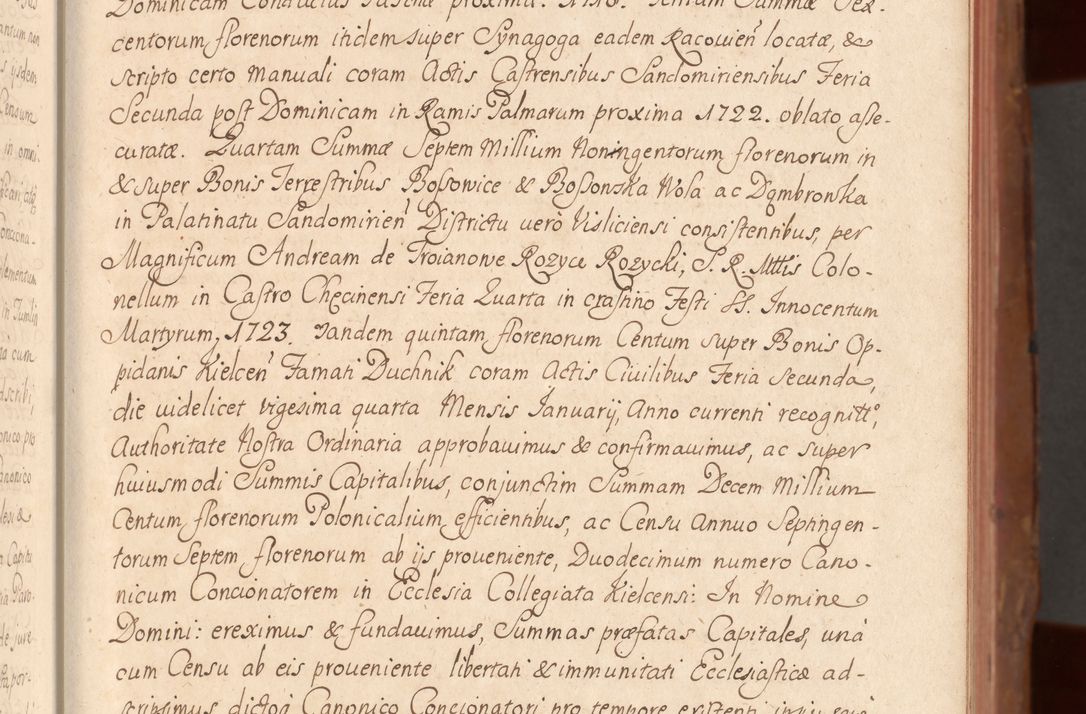 Dominicam Conductus Paschæ proxima. 1718. Tertiam Summæ Sex-
centorum florenorum itidem super Synagoga eadem Racowień locatæ, &
scripto certo Manuali coram Actis Castrensibus Sandomiriensibus Feria
Secunda post Dominicam in Ramis Palmarum proxima 1722. oblato asse-
curatæ. Quartam Summæ Septem Millium Noningentorum florenorum in
& super Bonis Terrestribus Bossowice & Bossonska Wola ac Dąmbronska
in Palatinatu Sandomirień Districtu verò Visliciensi consistentibus, per
Magnificum Andream de Troianowe Rozyce Rozycki, S. R. Mttis Colo-
nellum in Castro Checinensi Feria Quarta in crastino Festi SS. Innocentum
Martyrum, 1723. Tandem quintam florenorum Centum super Bonis Op-
pidanis Kielceń Famati Duchnik coram Actis Civilibus Feria secunda,
die videlicet vigesima quarta Mensis Januarij, Anno currenti recognitt°,
Authoritate Nostra Ordinaria approbavimus & confirmavimus, ac super
huiusmodi Summis Capitalibus, conjunctim Summam Decem Millium
Centum florenorum Polonicalium efficientibus, ac Censu Annuo Septingen-
torum Septem florenorum ab ijs proveniente, Duodecimum numero Cano-
nicum Concionatorem in Ecclesia Collegiata Kielcensi: In Nomine
Domini: ereximus & fundavimus, Summas præfatas Capitales, unà
cum Censu ab eis proveniente libertati & immunitati Ecclesiasticæ ad-
scripsimus dictoq Canonico Concionatori pro tempore existenti